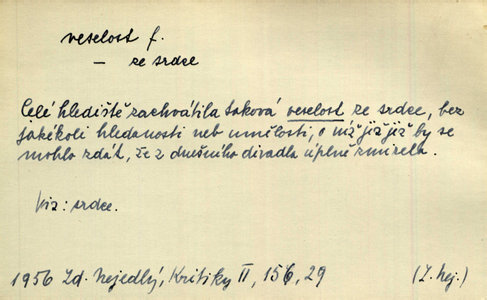 veselost f.
— ze srdce
Celé hlediště zachvátila taková veselost ze srdce, bez
jakékoli hledanosti neb umělosti, o níž již již by se
mohlo zdát, že z dnešního divadla úplně zmizela.
Viz: srdce.
1956 Zd. Nejedlý, Kritiky II, 156, 29 (Z. Nej.)